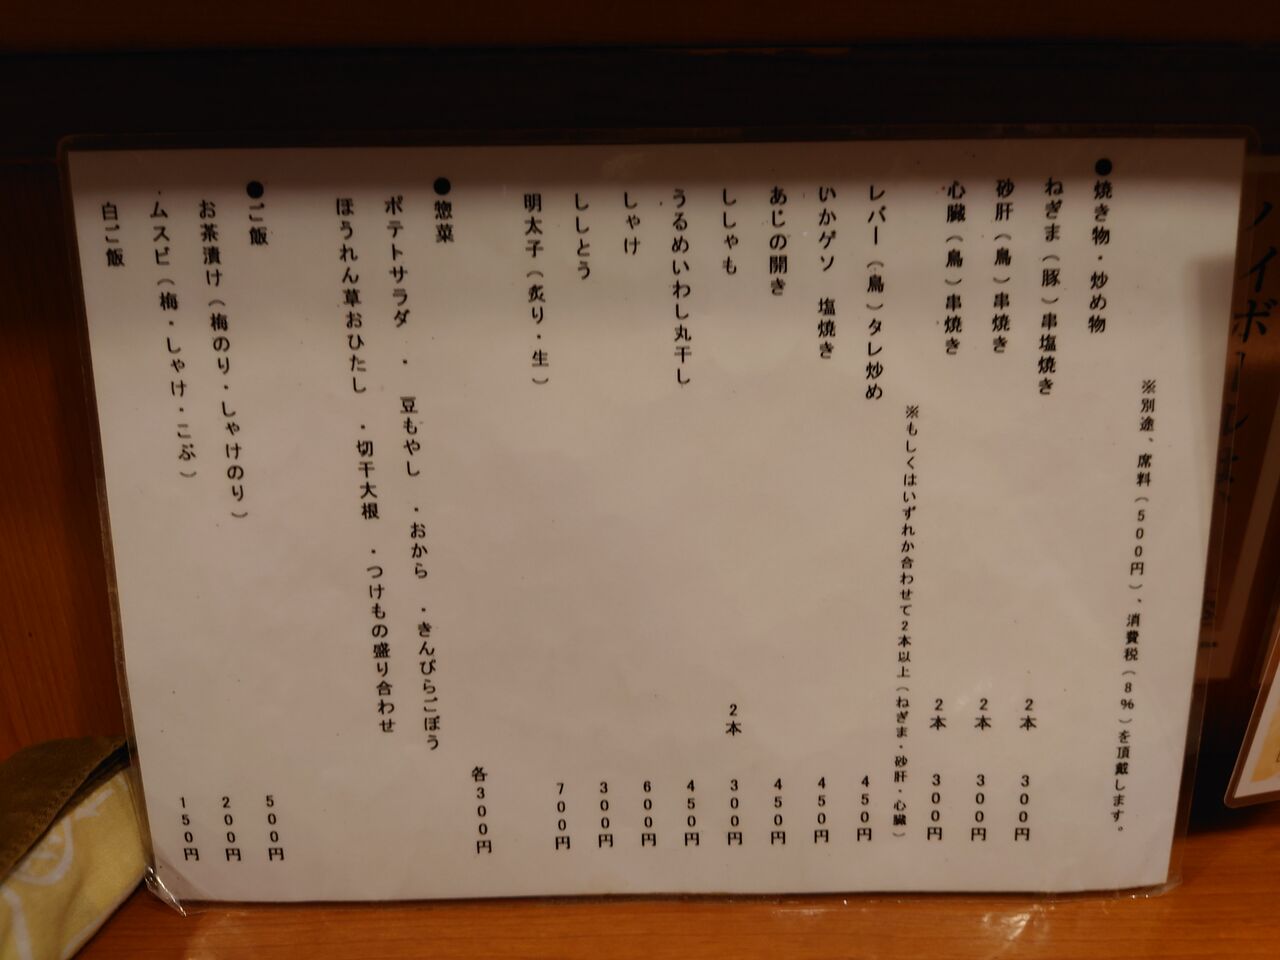 ※別途、席料(500円)、消費税(8%)を頂戴します。
●焼き物・炒め物
ねぎま(豚)串塩焼き 2本 300円
砂肝(鳥)串焼き 2本 300円
心臓(鳥)串焼き 2本 300円
※もしくはいずれか合わせて2本以上(ねぎま・砂肝・心臓)
レバー(鳥)タレ炒め 450円
いかゲソ 塩焼き 450円
あじの開き 450円
ししゃも 2本 300円
うるめいわし丸干し 450円
しゃけ 600円
ししとう 300円
明太子(炙り・生) 700円
●惣菜 各300円
ポテトサラダ ・ 豆もやし ・おから ・きんぴらごぼう
ほうれん草おひたし ・切干大根 ・つけもの盛り合わせ
●ご飯
お茶漬け(梅のり・しゃけのり) 500円
ムスビ(梅・しゃけ・こぶ) 200円
白ご飯 150円
ハイボール